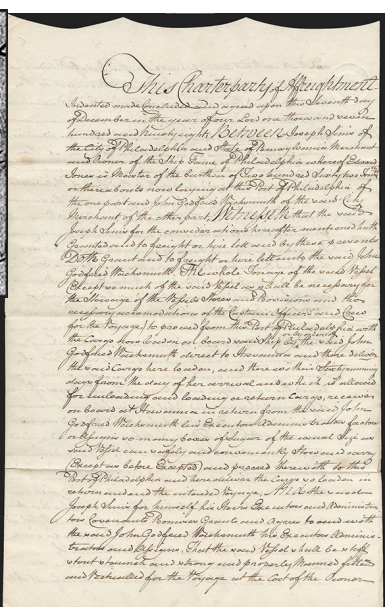 This Charterparty of Affreightment
Indented made Concluded and agreed upon this Seventh day
of December in the year of our Lord one thousand seven
hundred and ninety eight Between Joseph Sims of
the City of Philadelphia and State of Pennsylvania Merchant
and Owner of the Ship Fame of Philadelphia whereof Edward
Jones is Master of the burthen of Two hundred Sixty two Tons
or thereabouts now laying at the Port of Philadelphia of
the one part and John Godfried Wachsmuth of the said City
Merchant of the other part, Witnesseth that the said
Joseph Sims for the consideration hereafter mentioned hath
Granted and to freight or hire lett and by these presents
Doth Grant and to freight or hire lett unto the said John
Godfried Wachsmuth The whole Tonage of the said Vessel
(Except so much of the said Vessel as shall be necessary for
the Stowage of the Vessels Stores and Provisions and the
necessary accomodations of the Captain Officers and Crew
for the Voyage) to proceed from the Port of Philadelphia with
the Cargo now loaden on board said Ship by the said John
Godfried Wachsmuth direct to Havanna and there deliver
the said Cargo here loaden, and there within
days from the day of her arrival and which is allowed
for unloading and loading a return Cargo, receive
on board at Havanna in return from the said John
Godfried Wachsmuth his Executors Administrators factors
or Assigns so many boxes of Sugar of the usual Size as
said Vessel can safely and conveniently Stow and carry
(Except as before Excepted) and proceed therewith to the
Port of Philadelphia and here deliver the Cargo so loaden in
return and end the intended Voyage. And the said
Joseph Sims for himself his Heirs Executors and Administra-
tors Covenants Promises Grants and Agrees to and with
the said John Godfried Wachsmuth his Executors Adminis-
trators and Assigns, That the said Vessel shall be
stout staunch and strong and properly Manned fitted
and Victualled for the Voyage at the Cost of the Owner